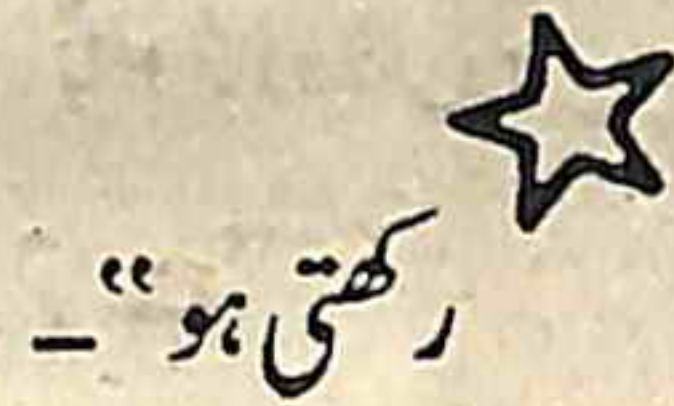 رکھتی ہو“۔